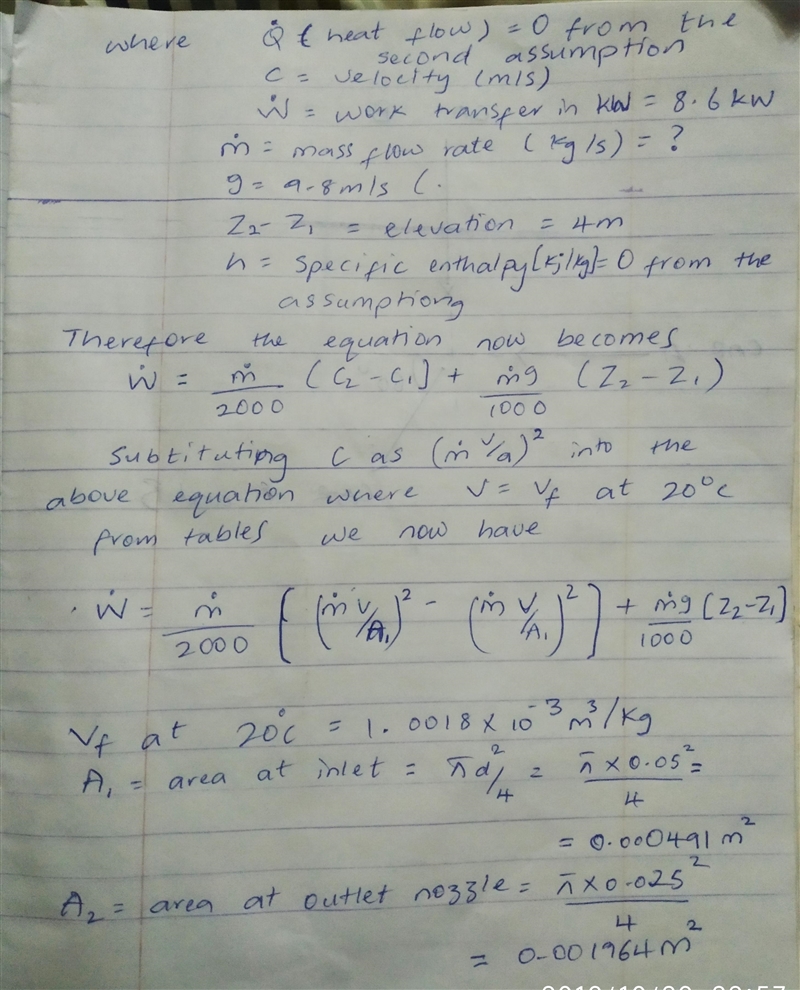 where Q̇ ( heat flow ) = 0 from the
second assumption
C = velocity (m/s)
Ẇ = work transfer in kW = 8.6 kW
ṁ = mass flow rate ( kg/s) = ?
g = 9.8 m/s (.
Z₂ - Z₁ = elevation = 4m
h = specific enthalpy [kj/kg] = 0 from the
assumptiong
Therefore the equation now becomes
Ẇ = ṁ/2000 ( C₂ - C₁ ] + ṁg/1000 ( Z₂ - Z₁ )
Subtituting C as (ṁ v/a)² into the
above equation where V = Vf at 20°c
from tables we now have
. Ẇ = ṁ/2000 [ (ṁ V/A₁)² - (ṁ V/A₁)² ] + ṁg/1000 [Z₂-Z₁]
Vf at 20°c = 1.0018 x 10⁻³ m³/kg
A₁ = area at inlet = πd²/4 = π x 0.05²/4 =
= 0.000491 m²
A₂ = area at outlet nozzle = π x 0.025²/4
= 0.001964 m²